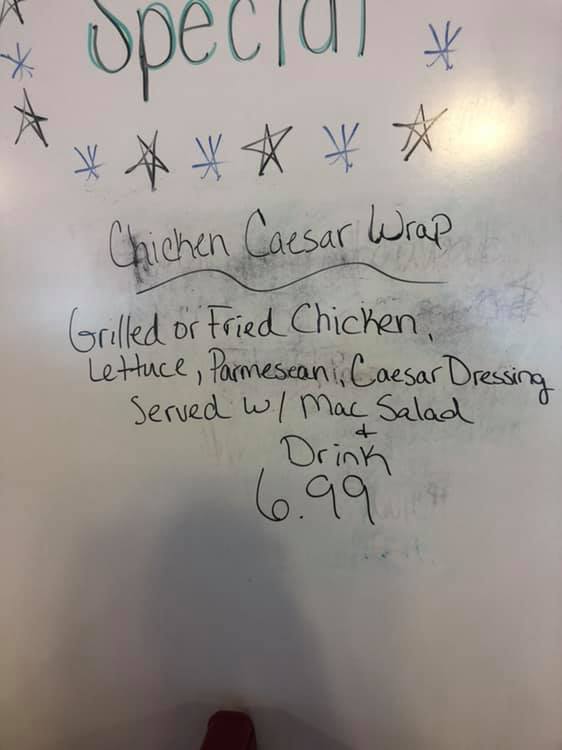 Special
Chicken Caesar Wrap
Grilled or Fried Chicken,
Lettuce, Parmeseani, Caesar Dressing
Served w/ Mac Salad
+
Drink
6.99